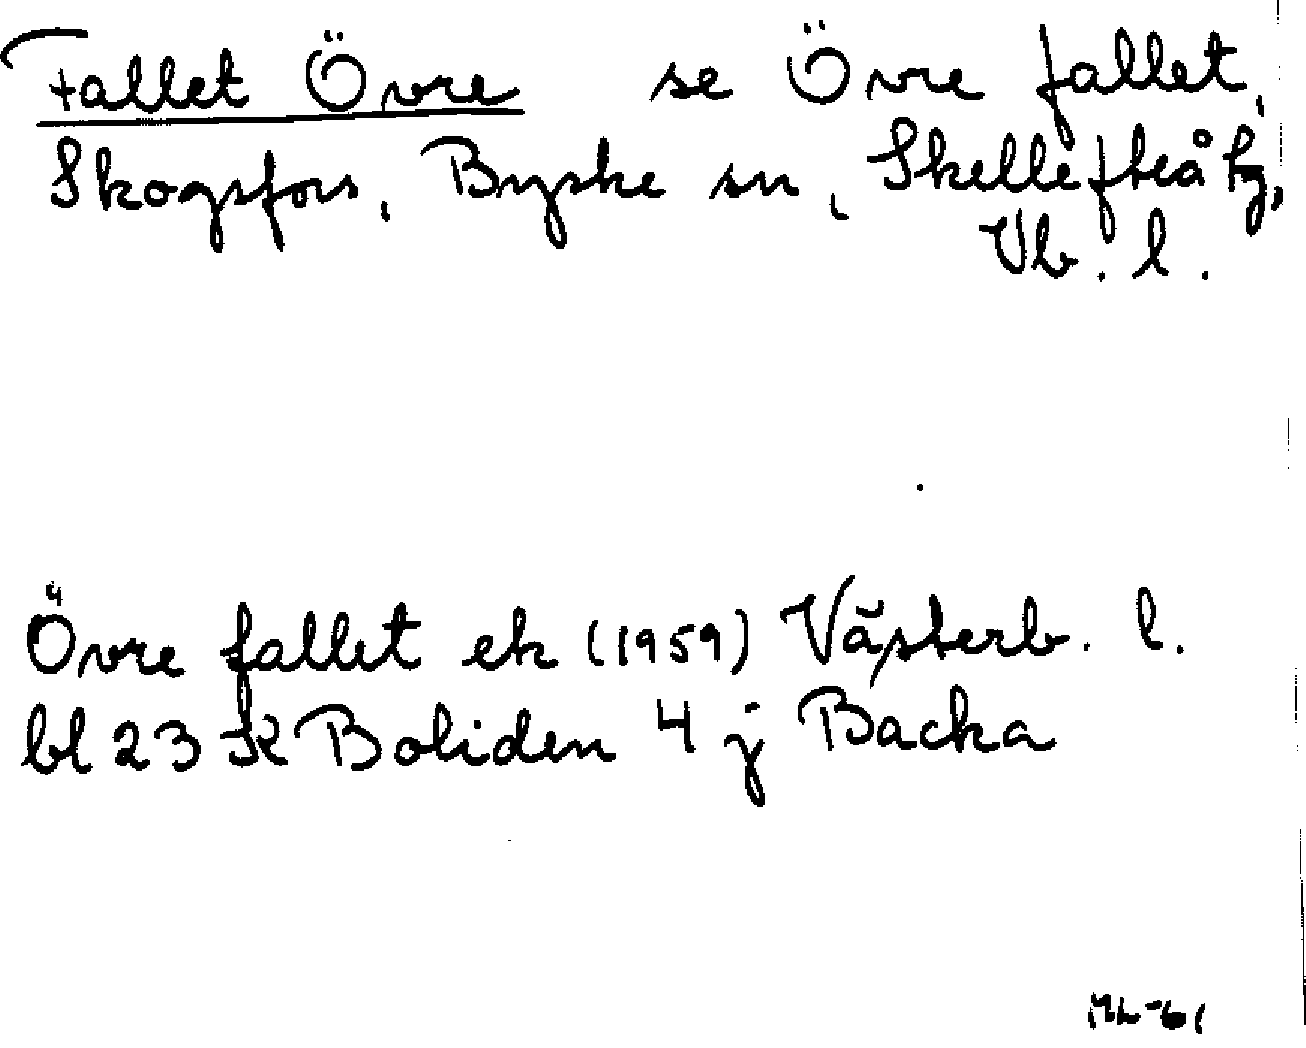 Fallet Övre se Övre fallet,
Skogsfors, Byske sn, Skellefteå tg,
Vb. l.
Övre fallet ek (1959) Västerb. l.
bl 23 K Boliden 4 j Backa
ML-61